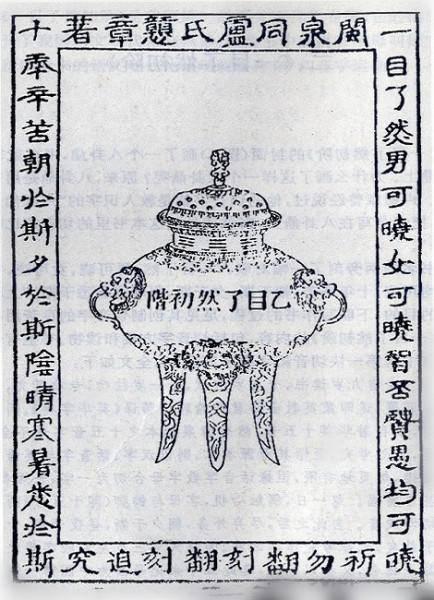 閩泉同盧氏戇章著
一目了然男可曉女可曉智否賢愚均可曉
十年辛苦朝於斯夕於斯陰晴寒暑悉於斯
乙目了然初階
祈勿翻刻翻刻追究